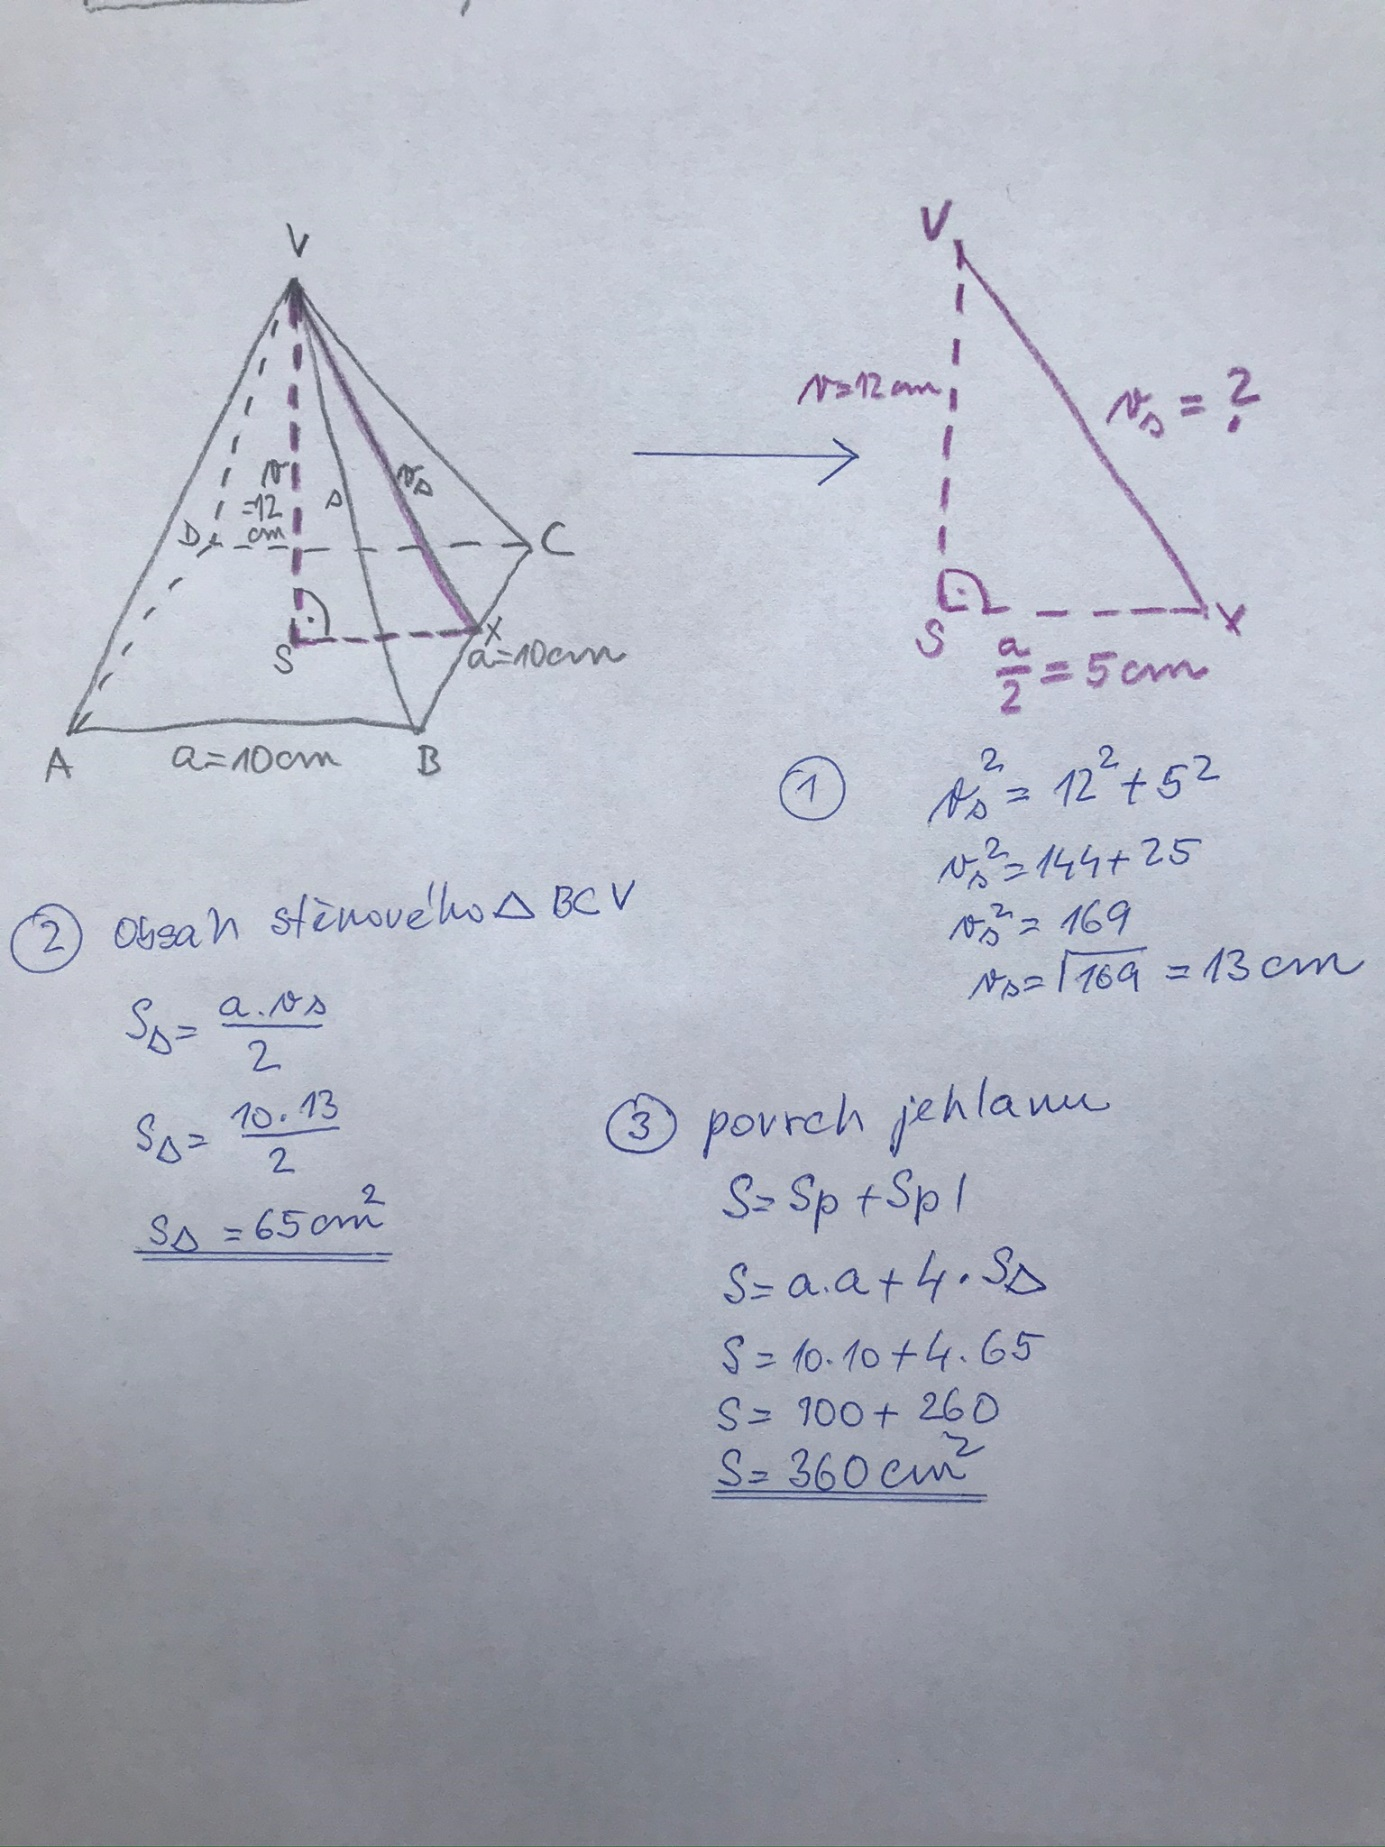 V
v
=12
cm
s
vs
D
C
S
X
a=10cm
A
a=10cm
B
V
v=12cm
vs = ?
S
X
a/2 = 5cm
1
vs² = 12² + 5²
vs² = 144 + 25
vs² = 169
vs = √169 = 13 cm
2 Obsah stěnového △ BCV
S△ = a.vs/2
S△ = 10.13/2
S△ = 65 cm²
3 povrch jehlanu
S = Sp + Spl
S = a.a + 4 . S△
S = 10.10 + 4.65
S = 100 + 260
S = 360 cm²